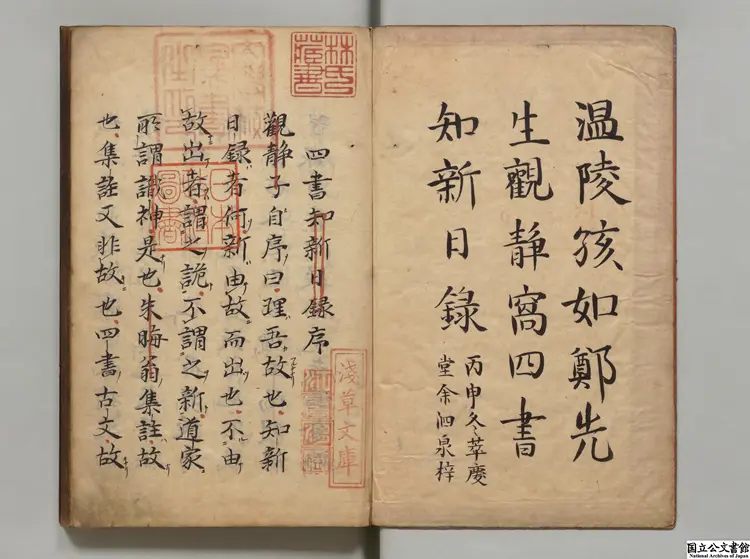 温陵孩如鄭先
生觀静窩四書
知新日録
丙申冬萃慶
堂余泗泉梓
四書知新日録序
觀静子自序曰理吾故也知新
日録者何新由故而出也不由
故出者謂之詭不謂之新道家
所謂識神是也朱晦翁集註故
也集註又非故也四書古文故
林氏
藏書
日本
圖書
淺草文庫
国立公文書館
National Archives of Japan